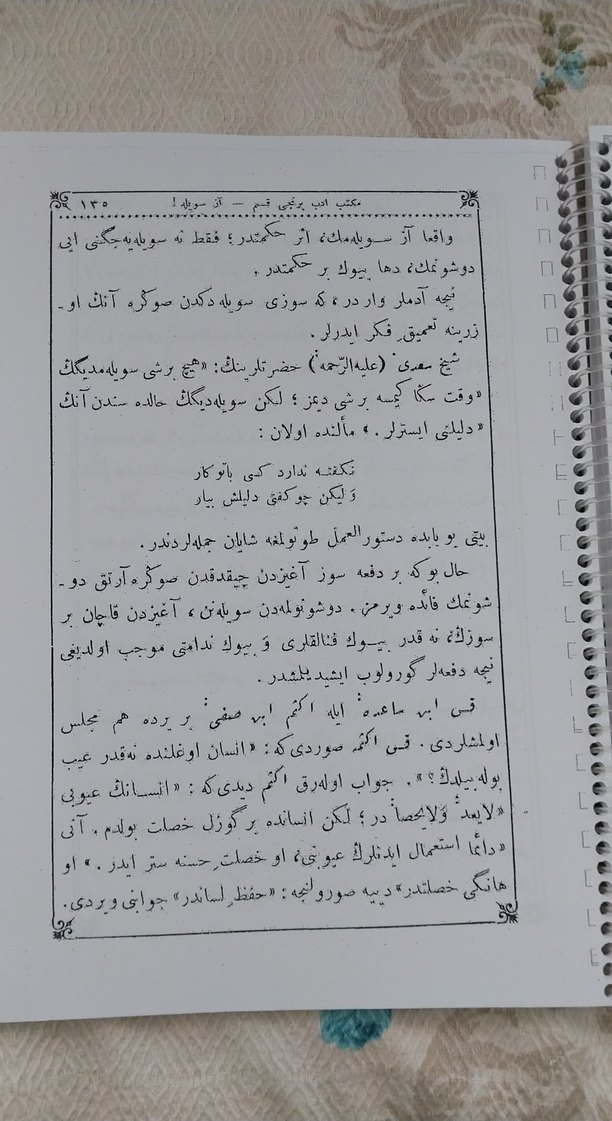 مكتب ادب برنجى قسم — آز سويله! ١٣٥
واقعا آز سـويله‌مك، اثر حكمتدر؛ فقط نه سويله‌يه‌جگنى ايى
دوشونمك، دها بيوك بر حكمتدر.
نيجه آدملر واردر، كه سوزى سويله‌دكدن صوڭره آنك او-
زرينه تعميق فكر ايدرلر.
شيخ سعدى (عليه الرّحمه) حضرتلرينك: «هيچ برشى سويله‌مديگك
«وقت سڭا كيمسه برشى ديمز؛ لكن سويله‌ديگك حالده سندن آنك
«دليلنى ايسترلر.» مألنده اولان:
نگفته ندارد كسى باتوكار
وَليكن چو گفتى دليلش بيار
بيتى بو بابده دستور العمل طوتولمغه شايان جمله‌لردندر.
حال بوكه بر دفعه سوز آغيزدن چيقدقدن صوڭره آرتق دو-
شونمك فائده ويرمز. دوشونولمه‌دن سويله‌نن، آغيزدن قاچان بر
سوزڭ، نه قدر بيـوك فنالقلرى وَ بيوك ندامتى موجب اولديغى
نيجه دفعه‌لر گورولوب ايشيديلمشدر.
قس ابن ساعده ايله اكثم ابن صيفى بر يرده هم مجلس
اولمشلردى. قس اكثمه صوردى كه: «انسان اوغلنده نه‌قدر عيب
بوله‌بيلدك؟». جواب اوله‌رق اكثم ديدى كه: «انسـانك عيوبى
«لايعدّ وَلايحصا در؛ لكن انسانده بر گوزل خصلت بولدم. آنى
«دائما استعمال ايدنلرك عيوبنى، او خصلت حسنه ستر ايدر.» او
هانگى خصلتدر» دييه صورولنجه: «حفظ لساندر» جوابنى ويردى.